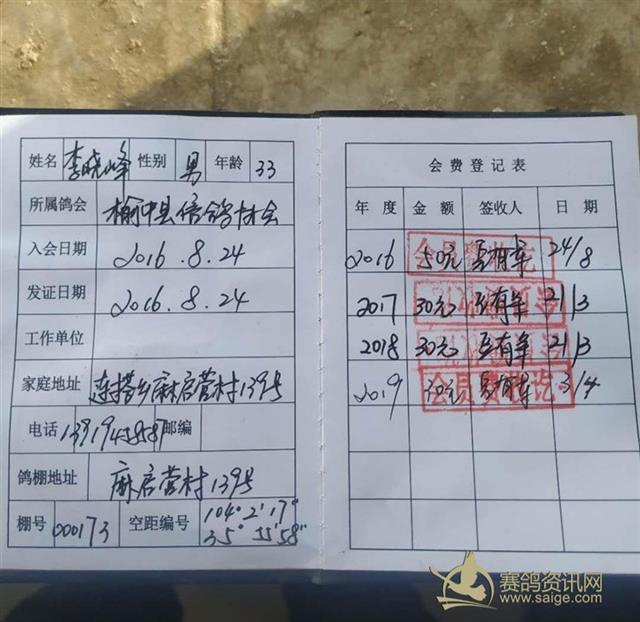 姓名 李晓峰 性别 男 年龄 33
所属鸽会 榆中县信鸽协会
入会日期 2016.8.24
发证日期 2016.8.24
工作单位
家庭地址 连搭乡麻启营村139号
电话 邮编
鸽棚地址 麻启营村139号
棚号 000173 空距编号 104°2'17"
35° 58"
会费登记表
年度 金额 签收人 日期
2016 50元 24/8
2017 30元 21/3
2018 30元 21/3
2019 30元 3/4
赛鸽资讯网
www.saige.com